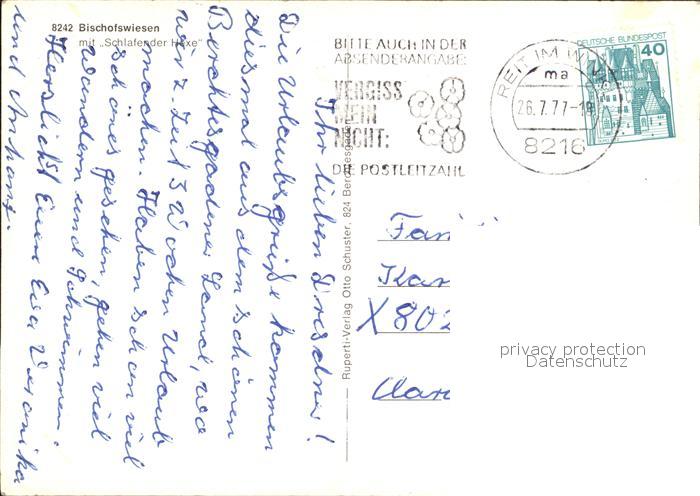 8242 Bischofswiesen
mit „Schlafender Hexe“
Ihr lieben Dresdner!
Die Urlaubsgrüße kommen
diesmal aus dem schönen
Berchtesgadener Land, wo
wir z. Zeit 3 Wochen Urlaub
machen. Haben schon viel
schönes gesehen, gehen viel
wandern und schwimmen.
Herzlichst Euren Eva Veronika
und Anhang.
Ruperti-Verlag Otto Schuster, 824 Berchtesgaden
BITTE AUCH IN DER
ABSENDERANGABE:
VERGISS
MEIN
NICHT:
DIE POSTLEITZAHL
REIT IM WI
ma
26.7.77-18
8216
DEUTSCHE BUNDESPOST
40
Fam
Kar
X 802
privacy protection
Datenschutz